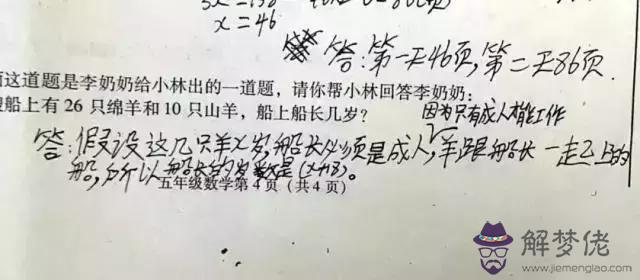 x=46
答:第一天46页,第二天86页.
这道题是李奶奶给小林出的一道题,请你帮小林回答李奶奶:
船上有26只绵羊和10只山羊,船上船长几岁?
因为只有成人才能工作
答:假设这几只羊x岁,船长必须是成人,羊跟船长一起上的
船,所以船长的岁数是(x+18)。
五年级数学第4页(共4页)
解梦佬
www.jiemenglao.com